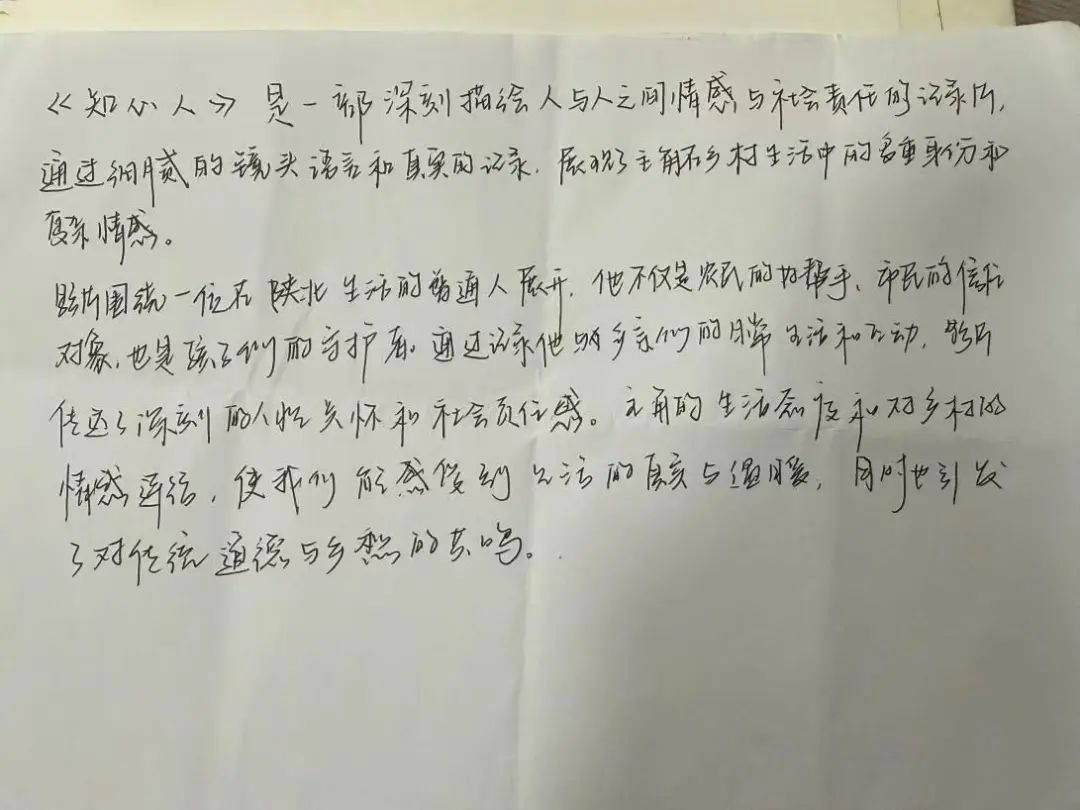 《知心人》是一部深刻描绘人与人之间情感与社会责任的记录片，
通过细腻的镜头语言和真实的记录，展现了主角在乡村生活中的多重身份和
复杂情感。
影片围绕一位在陕北生活的普通人展开，他不仅是农民的好帮手、市民的信任
对象，也是孩子们的守护者。通过记录他与乡亲们的日常生活和互动，影片
传达了深刻的人性关怀和社会责任感。主角的生活态度和对乡村的
情感连结，使我们能感受到生活的真实与温暖，同时也引发
了对传统道德与乡愁的共鸣。